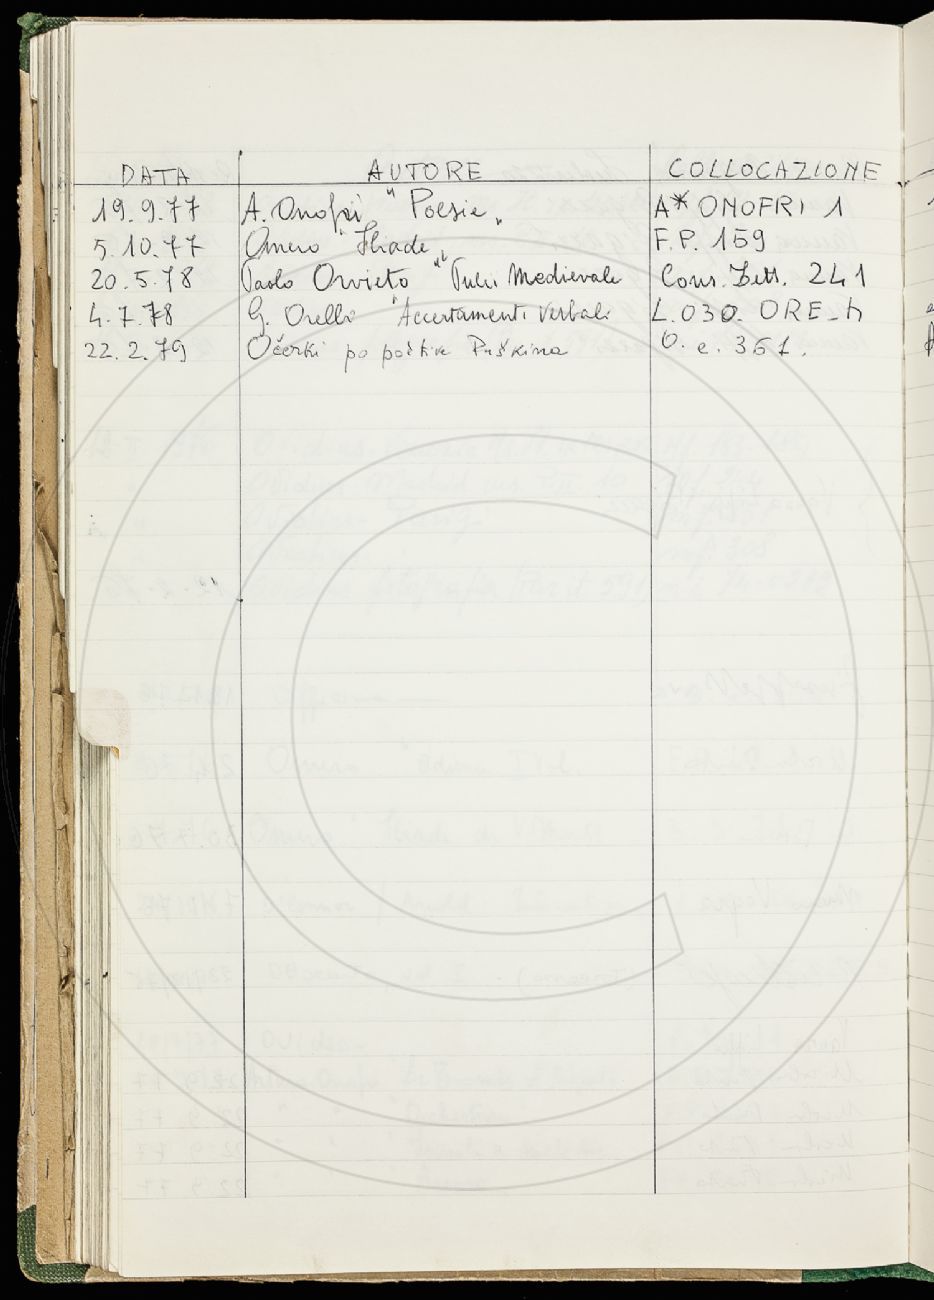 DATA AUTORE COLLOCAZIONE
19.9.77 A. Onofri " Poesie „ A* ONOFRI 1
5.10.77 Omero "Iliade„ F.P. 159
20.5.78 Paolo Orvieto "Pulci Medievale" Cons. Lett. 241
4.7.78 G. Orelli "Accertamenti Verbali L.030. ORE-h
22.2.79 Očerki po poètike Puškina O. e. 361.